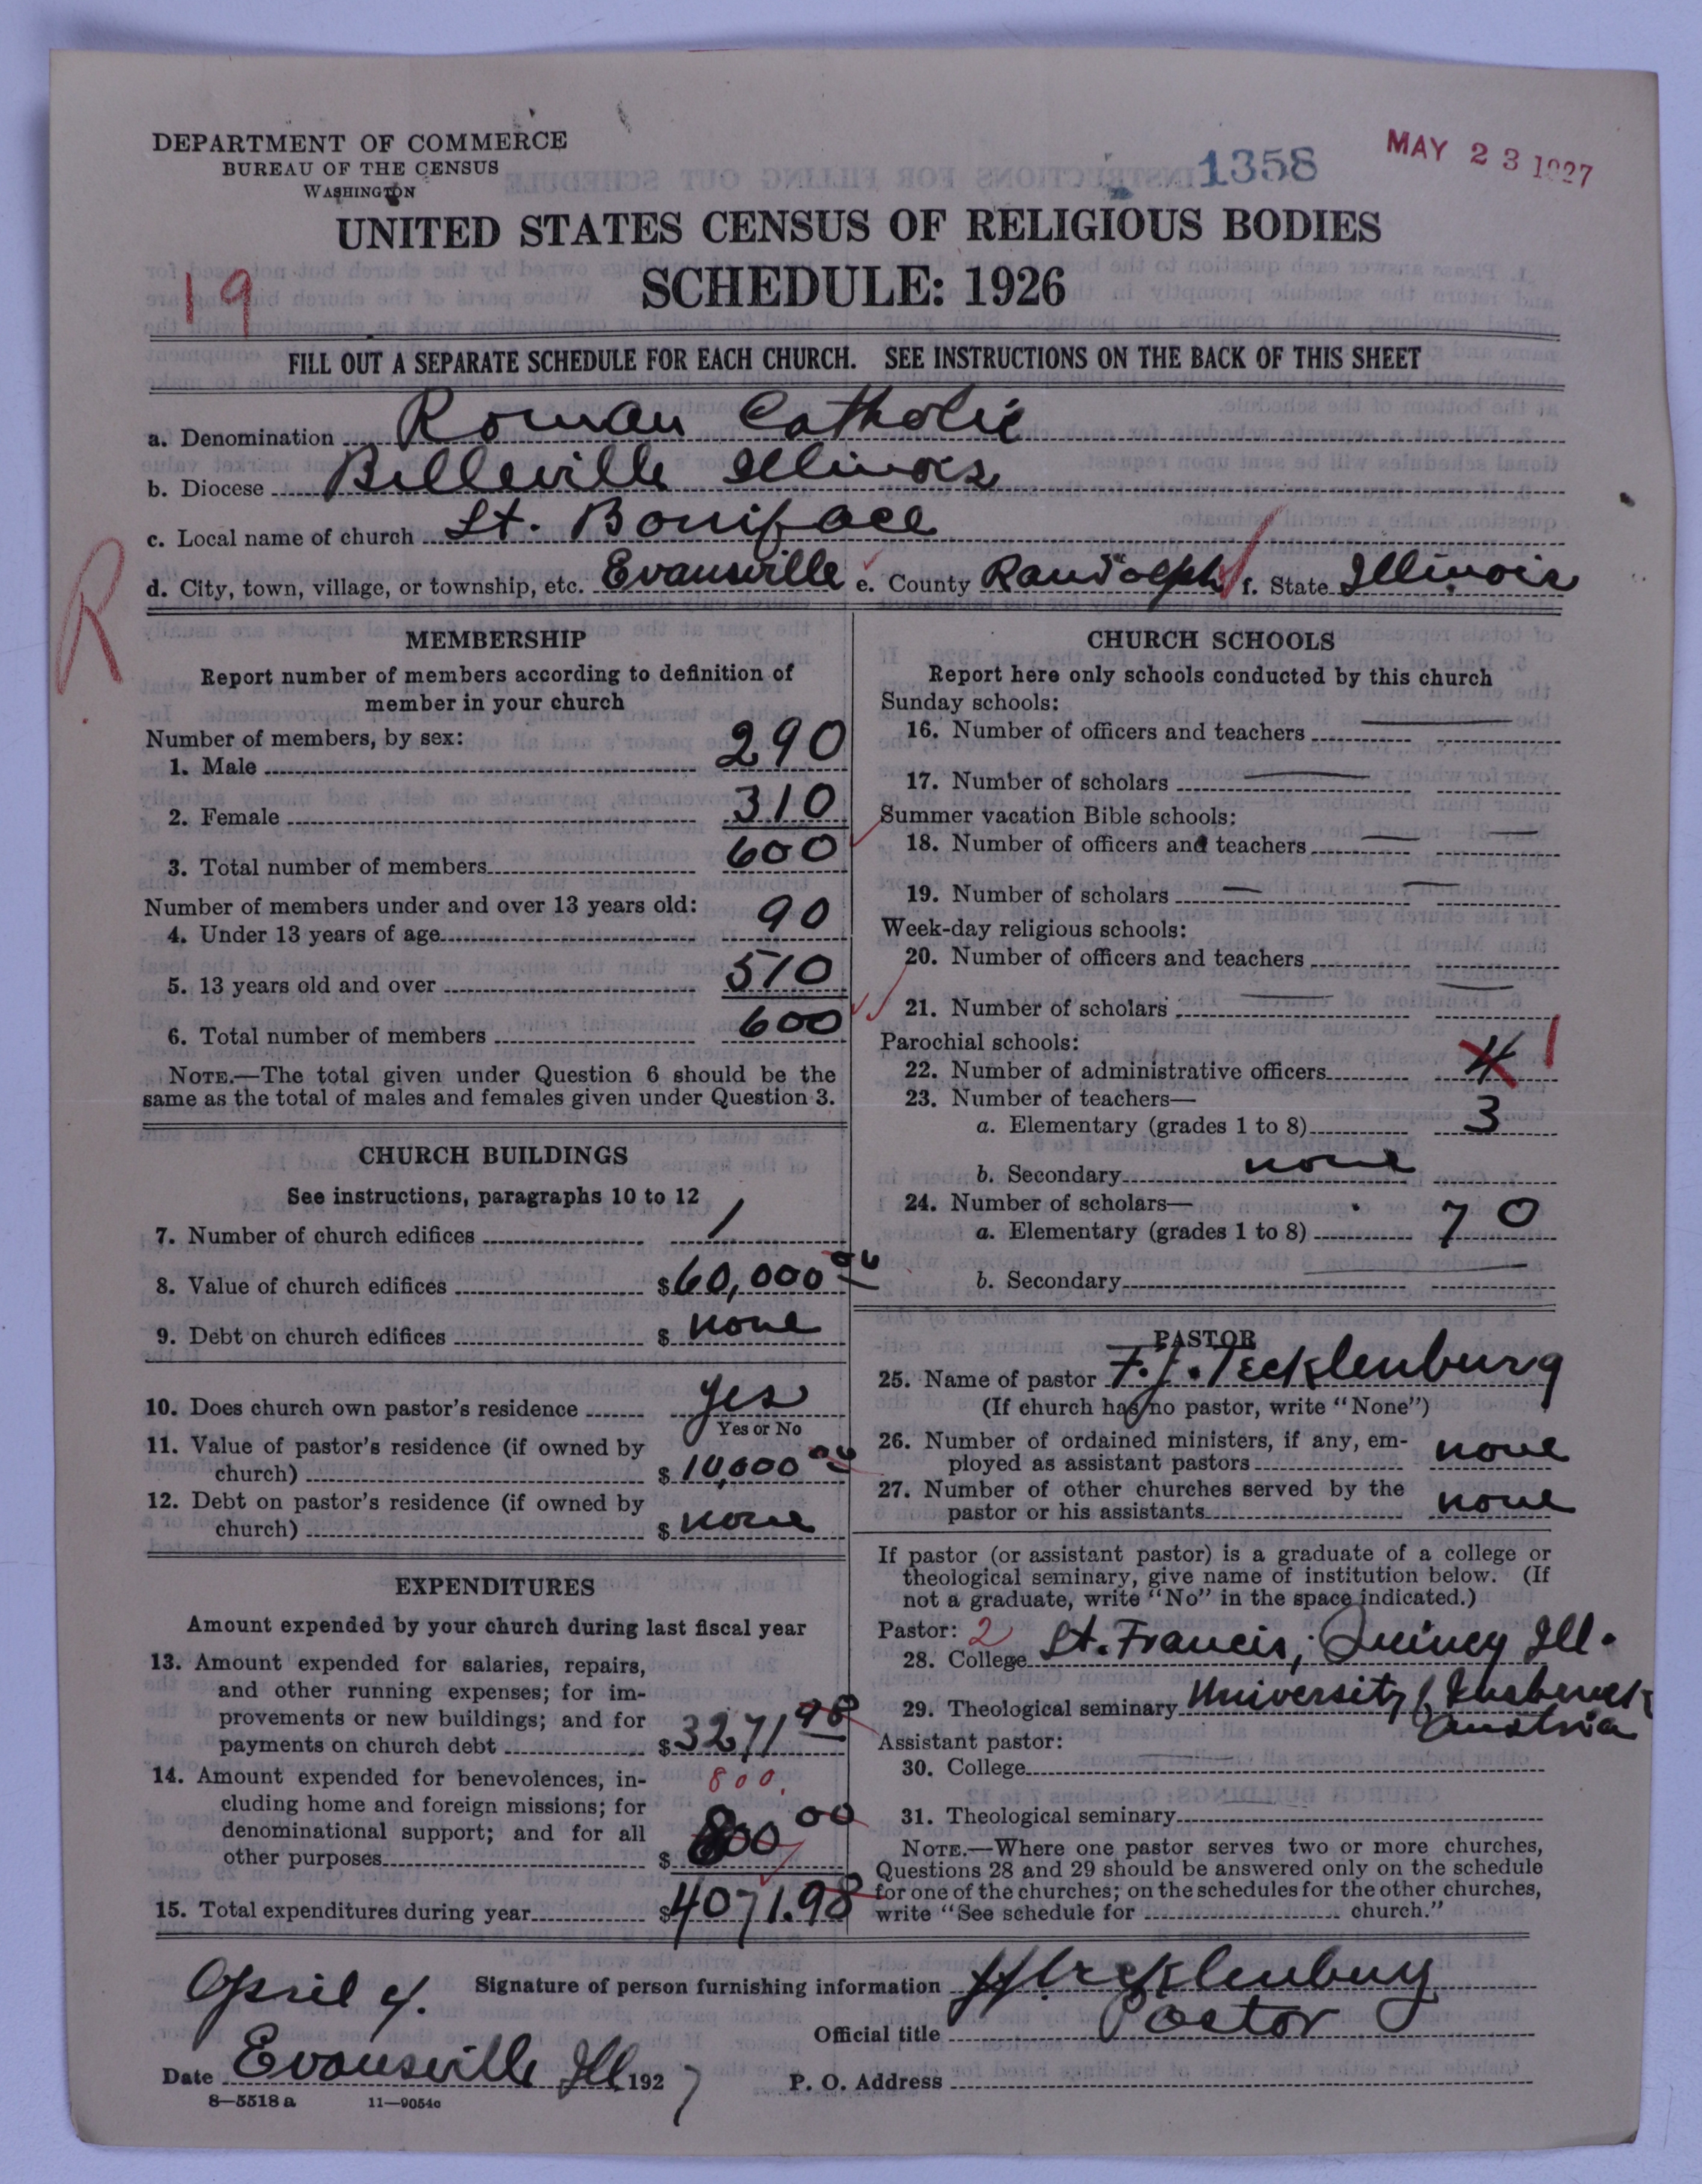 DEPARTMENT OF COMMERCE
BUREAU OF THE CENSUS
WASHINGTON
1358
MAY 23 1927
UNITED STATES CENSUS OF RELIGIOUS BODIES
SCHEDULE: 1926
19
FILL OUT A SEPARATE SCHEDULE FOR EACH CHURCH. SEE INSTRUCTIONS ON THE BACK OF THIS SHEET
a. Denomination Roman Catholic
b. Diocese Belleville Illinois
c. Local name of church St. Boniface
d. City, town, village, or township, etc. Evansville e. County Randolph f. State Illinois
R
MEMBERSHIP
Report number of members according to definition of
member in your church
Number of members, by sex:
1. Male 290
2. Female 310
3. Total number of members 600
Number of members under and over 13 years old:
4. Under 13 years of age 90
5. 13 years old and over 510
6. Total number of members 600
NOTE.—The total given under Question 6 should be the
same as the total of males and females given under Question 3.
CHURCH BUILDINGS
See instructions, paragraphs 10 to 12
7. Number of church edifices 1
8. Value of church edifices $60,000 00
9. Debt on church edifices $ none
10. Does church own pastor's residence yes
Yes or No
11. Value of pastor's residence (if owned by
church) $10,000 00
12. Debt on pastor's residence (if owned by
church) $ none
EXPENDITURES
Amount expended by your church during last fiscal year
13. Amount expended for salaries, repairs,
and other running expenses; for im-
provements or new buildings; and for
payments on church debt $3271 98
14. Amount expended for benevolences, in- 800.
cluding home and foreign missions; for
denominational support; and for all
other purposes $ 800 00
15. Total expenditures during year $4071.98
CHURCH SCHOOLS
Report here only schools conducted by this church
Sunday schools:
16. Number of officers and teachers
17. Number of scholars
Summer vacation Bible schools:
18. Number of officers and teachers
19. Number of scholars
Week-day religious schools:
20. Number of officers and teachers
21. Number of scholars
Parochial schools:
22. Number of administrative officers 4 1
23. Number of teachers—
a. Elementary (grades 1 to 8) 3
b. Secondary none
24. Number of scholars—
a. Elementary (grades 1 to 8) 70
b. Secondary
PASTOR
25. Name of pastor F. J. Tecklenburg
(If church has no pastor, write "None")
26. Number of ordained ministers, if any, em-
ployed as assistant pastors none
27. Number of other churches served by the
pastor or his assistants none
If pastor (or assistant pastor) is a graduate of a college or
theological seminary, give name of institution below. (If
not a graduate, write "No" in the space indicated.)
Pastor: 2
28. College St. Francis, Quincy Ill.
29. Theological seminary University Insbruck
Austria
Assistant pastor:
30. College
31. Theological seminary
NOTE.—Where one pastor serves two or more churches,
Questions 28 and 29 should be answered only on the schedule
for one of the churches; on the schedules for the other churches,
write "See schedule for church."
April 4. Signature of person furnishing information FJTecklenburg
Official title Pastor
Date Evansville Ill 1927 P. O. Address
8—5518a 11—9054c